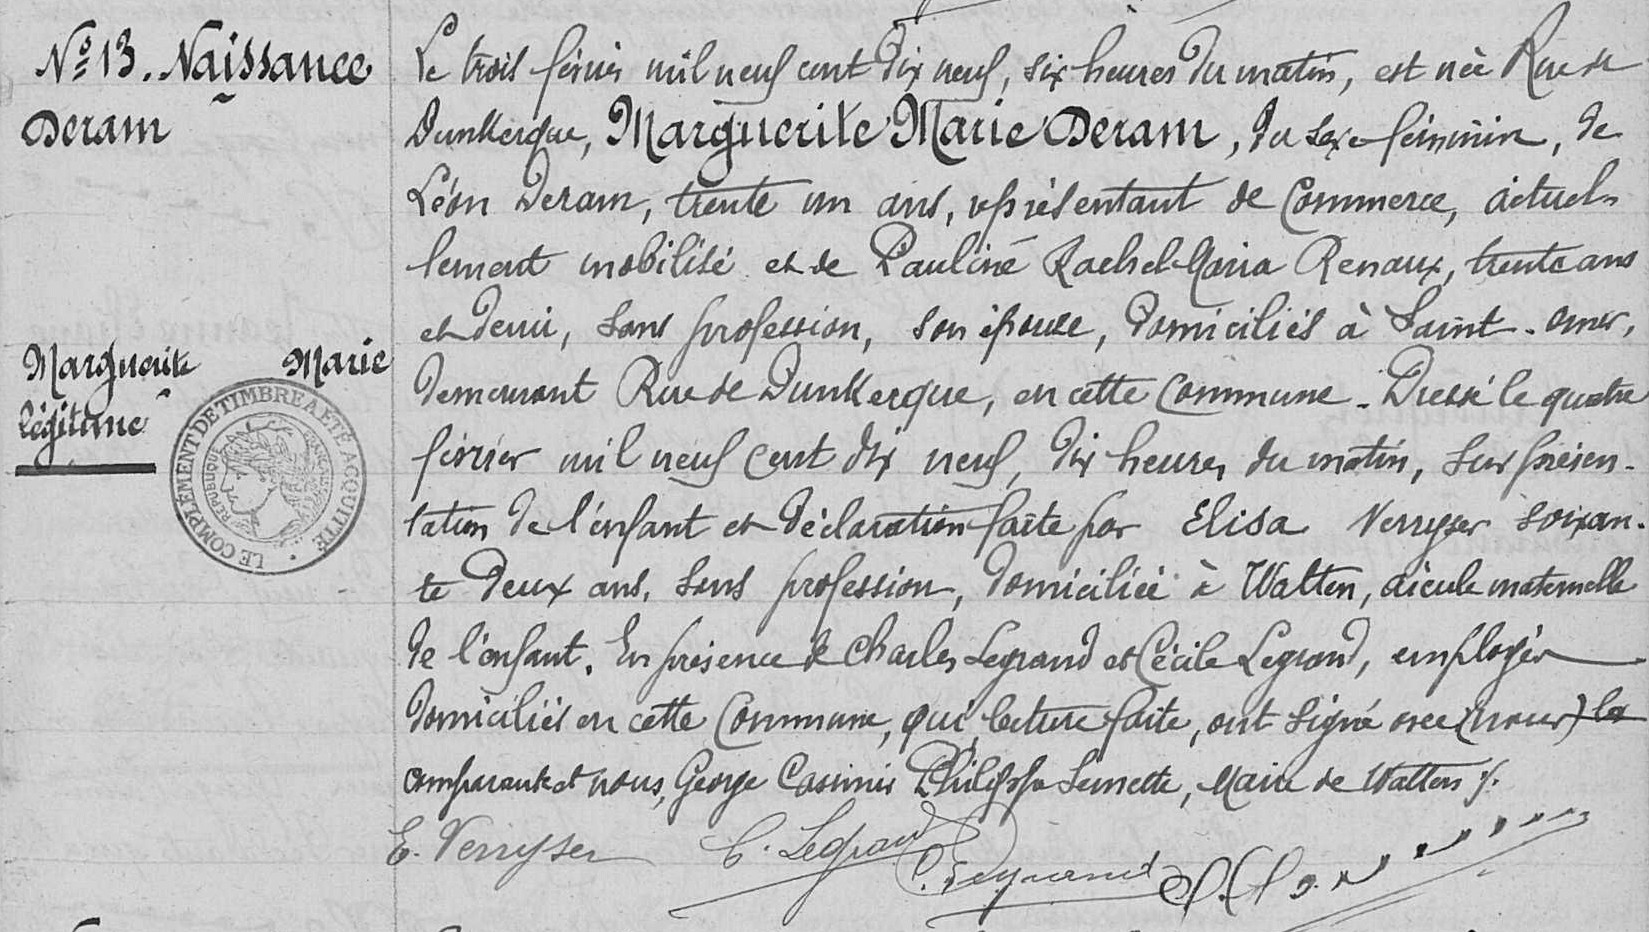 Nº 13. Naissance
Deram
Marguerite Marie
légitime
LE COMPLÉMENT DE TIMBRE A ÉTÉ ACQUITTÉ
REPUBLIQUE FRANÇAISE
Le trois février mil neuf cent dix neuf, six heures du matin, est née Rue de
Dunkerque, Marguerite Marie Deram, du sexe féminin, de
Léon Deram, trente un ans, représentant de Commerce, actuel-
lement mobilisé et de Pauline Rachel Maria Renaux, trente ans
et demi, sans profession, son épouse, domiciliés à Saint-Omer,
demeurant Rue de Dunkerque, en cette Commune. Dressé le quatre
février mil neuf cent dix neuf, dix heures du matin, sur présen-
tation de l'enfant et déclaration faite par Elisa Verryser soixan-
te deux ans, sans profession, domiciliée à Watten, aïeule maternelle
de l'enfant. En présence de Charles Legrand et Cécile Legrand, employés
domiciliés en cette Commune, qui, lecture faite, ont signé avec (nous) la
comparante et nous, George Casimir Philippe Lemette, Maire de Watten ./.
E. Verryser C. Legrand C. Legrand